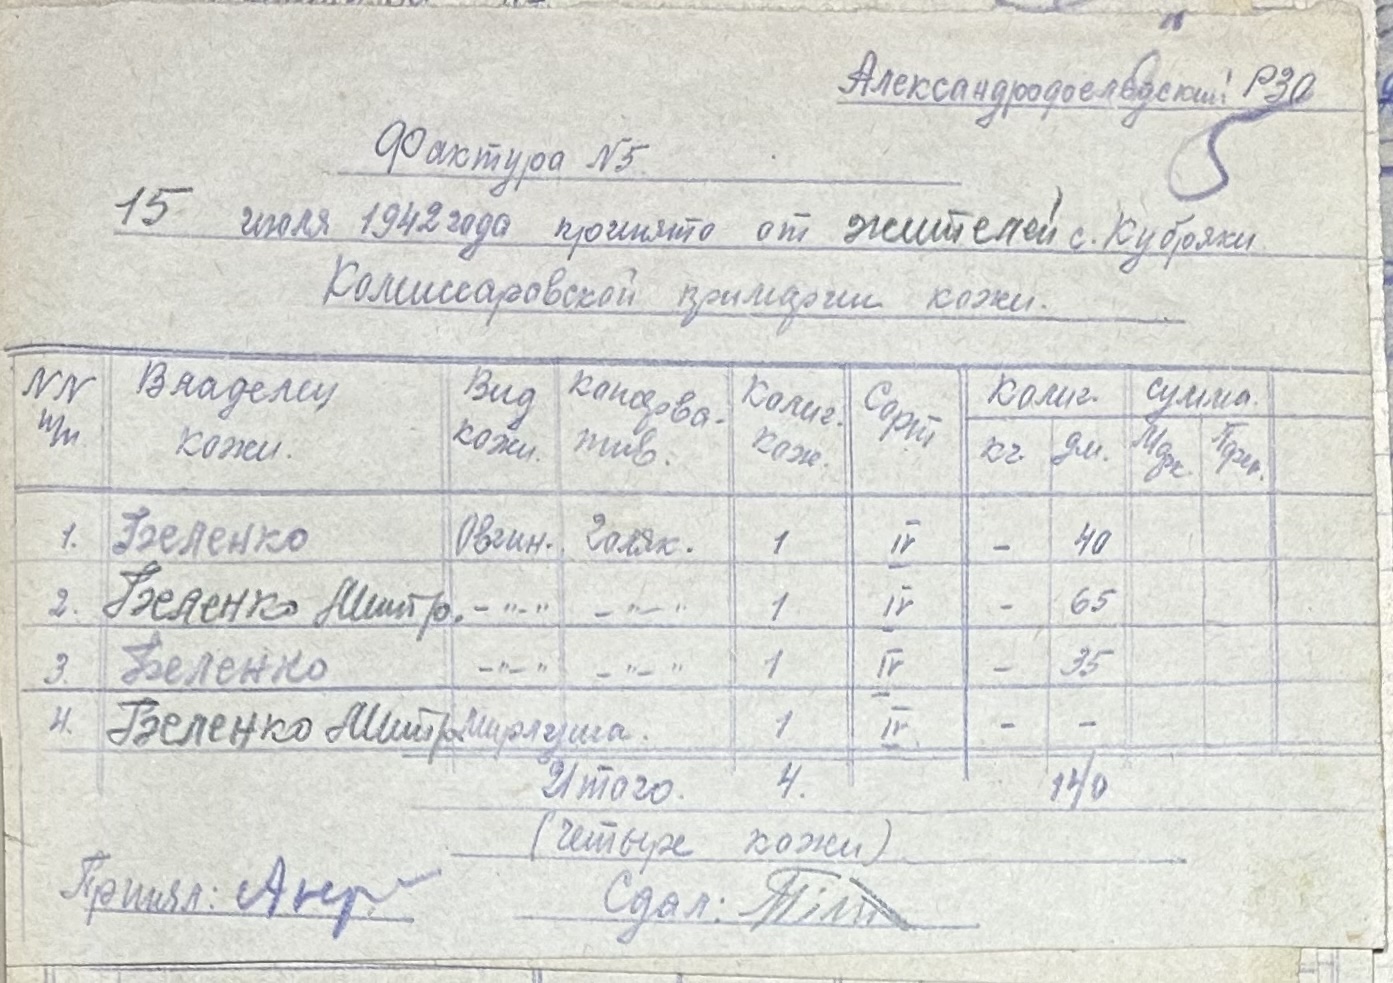 Александродоелвдский РЗО
Фактура N5.
15 июля 1942 года принято от жителей с. Кубряки
Комиссаровской примарии кожи.
NN п/п Владелец кожи. Вид кожи. консерва-тив. Колич. кож. Сорт Колич. сумма.
кг. дм. Мрк. Пфен.
1. Беленко Овчин. Голяк. 1 IV - 40
2. Беленко Дмитр. -"-" -"-" 1 IV - 65
3. Беленко -"-" -"-" 1 IV - 35
4. Беленко Дмитр. Мирлуша. 1 IV - -
Итого. 4. 140
(Четыре кожи)
Принял: Сдал: